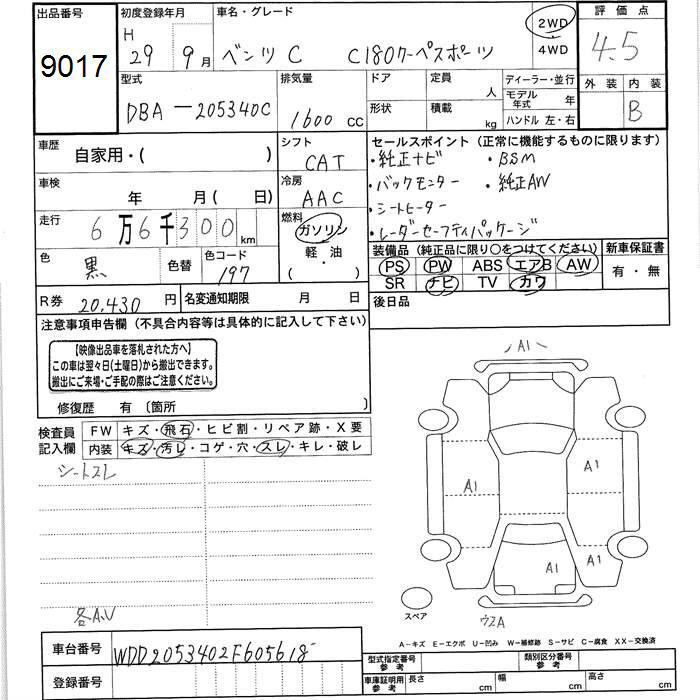 出品番号
9017
初度登録年月
H 29 9月
車名・グレード
ベンツ C C180クーペスポーツ
2WD
4WD
評価点
4.5
外装 内装
B
型式
DBA-205340C
排気量
1600 cc
ドア
形状
定員
人
積載
kg
ディーラー・並行
モデル年式 年
ハンドル 左・右
車歴
自家用・( )
シフト
CAT
車検
年 月( 日)
冷房
AAC
走行
6万6千300km
燃料
ガソリン
軽・油
・( )
色
黒
色替
色コード
197
セールスポイント (正常に機能するものに限ります)
・純正ナビ ・BSM
・バックモニター ・純正AW
・シートヒーター
・レーダーセーフティパッケージ
装備品 (純正品に限り○をつけてください)
PS PW ABS エアB AW
SR ナビ TV カワ
新車保証書
有・無
後日品
R券 20,430 円
名変通知期限 月 日
注意事項申告欄 (不具合内容等は具体的に記入して下さい)
【映像出品車を落札された方へ】
この車は翌々日(土曜日)から搬出できます。
搬出にご来場・ご手配の際はご注意ください。
修復歴 有 〔箇所 〕
検査員記入欄
FW キズ・飛石・ヒビ割・リペア跡・X要
内装 キズ・汚レ・コゲ・穴・スレ・キレ・破レ
シートスレ
各A.U
A1
A1
A1
A1
A1
スペア
ウスA
A-キズ E-エクボ U-凹み W-補修跡 S-サビ C-腐食 XX-交換済
車台番号
WDD2053402F605618
登録番号
型式指定番号 参考
類別区分番号 参考
車庫証明用 参考
長さ cm
幅 cm
高さ cm